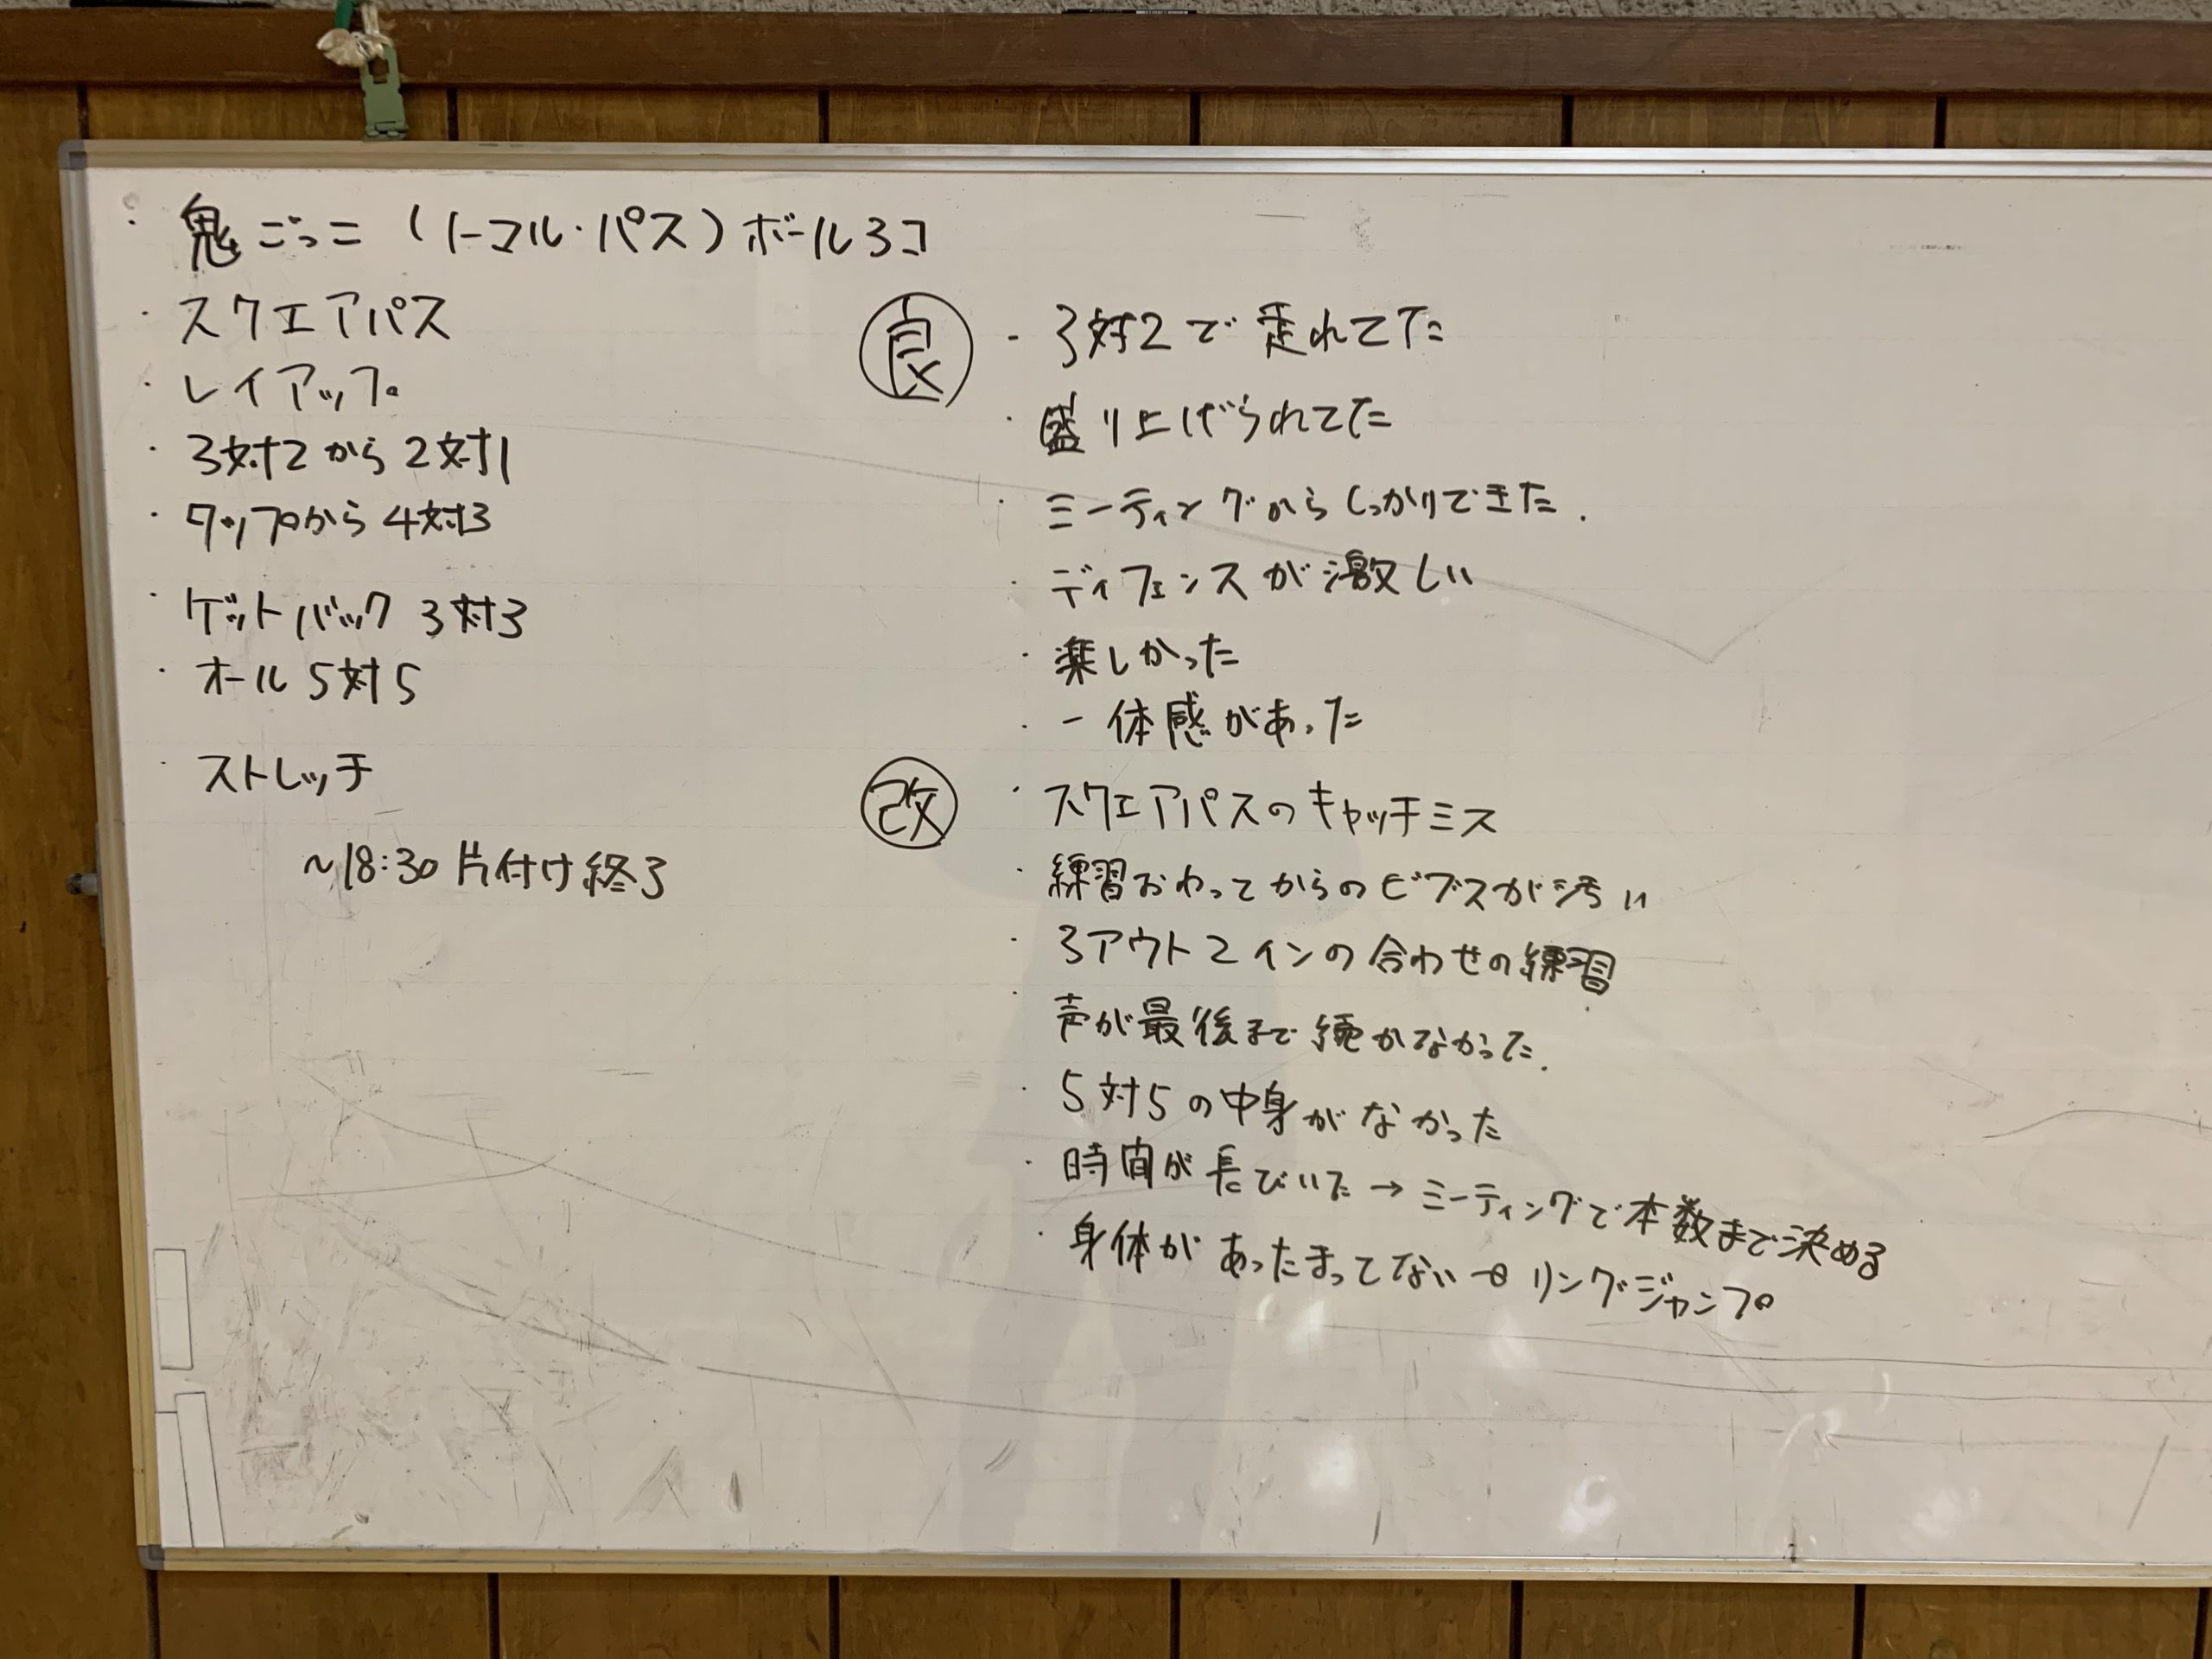 ・鬼ごっこ（ノーマル・パス）ボール3コ
・スクエアパス
・レイアップ
・3対2から2対1
・タップから4対3
・ゲットバック 3対3
・オール5対5
・ストレッチ
～18:30片付け終了
良 ・3対2で走れてた
・盛り上げられてた
・ミーティングからしっかりできた.
・ディフェンスが激しい
・楽しかった
・一体感があった
改 ・スクエアパスのキャッチミス
・練習おわってからのビブスが汚い
・3アウト2インの合わせの練習
・声が最後まで続かなかった.
・5対5の中身がなかった
・時間が長びいた→ミーティングで本数まで決める
・身体があったまってない→リングジャンプ